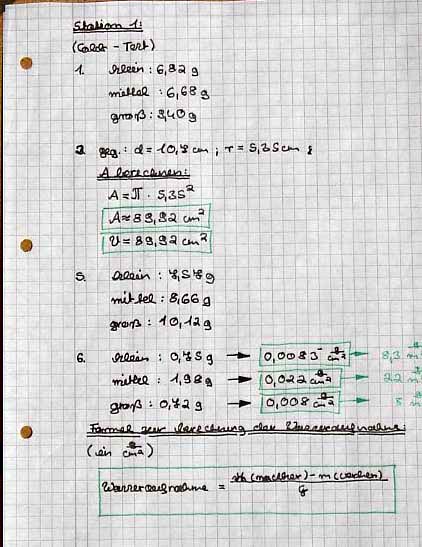 Station 1:
(Cobb - Test)
1. klein : 6,82 g
mittel : 6,68 g
groß : 9,40 g
2. geg.: d = 10,7 cm ; r = 5,35 cm
A berechnen:
A = π · 5,35²
A ≈ 89,92 cm²
U = 89,92 cm²
5. klein : 7,57 g
mittel : 8,66 g
groß : 10,12 g
6. klein : 0,75 g → 0,0083 g/cm² → 8,3
mittel : 1,98 g → 0,022 g/cm² → 22
groß : 0,72 g → 0,008 g/cm² → 8
Formel zur Berechnung der Wasseraufnahme
(in g/cm²)
Wasseraufnahme = m (nachher) - m (vorher) /